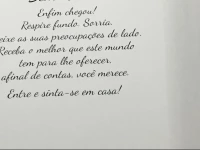 Enfim chegou!
Respire fundo. Sorria.
as suas preocupações de lado.
Receba o melhor que este mundo
tem para lhe oferecer,
afinal de contas, você merece.
Entre e sinta-se em casa!